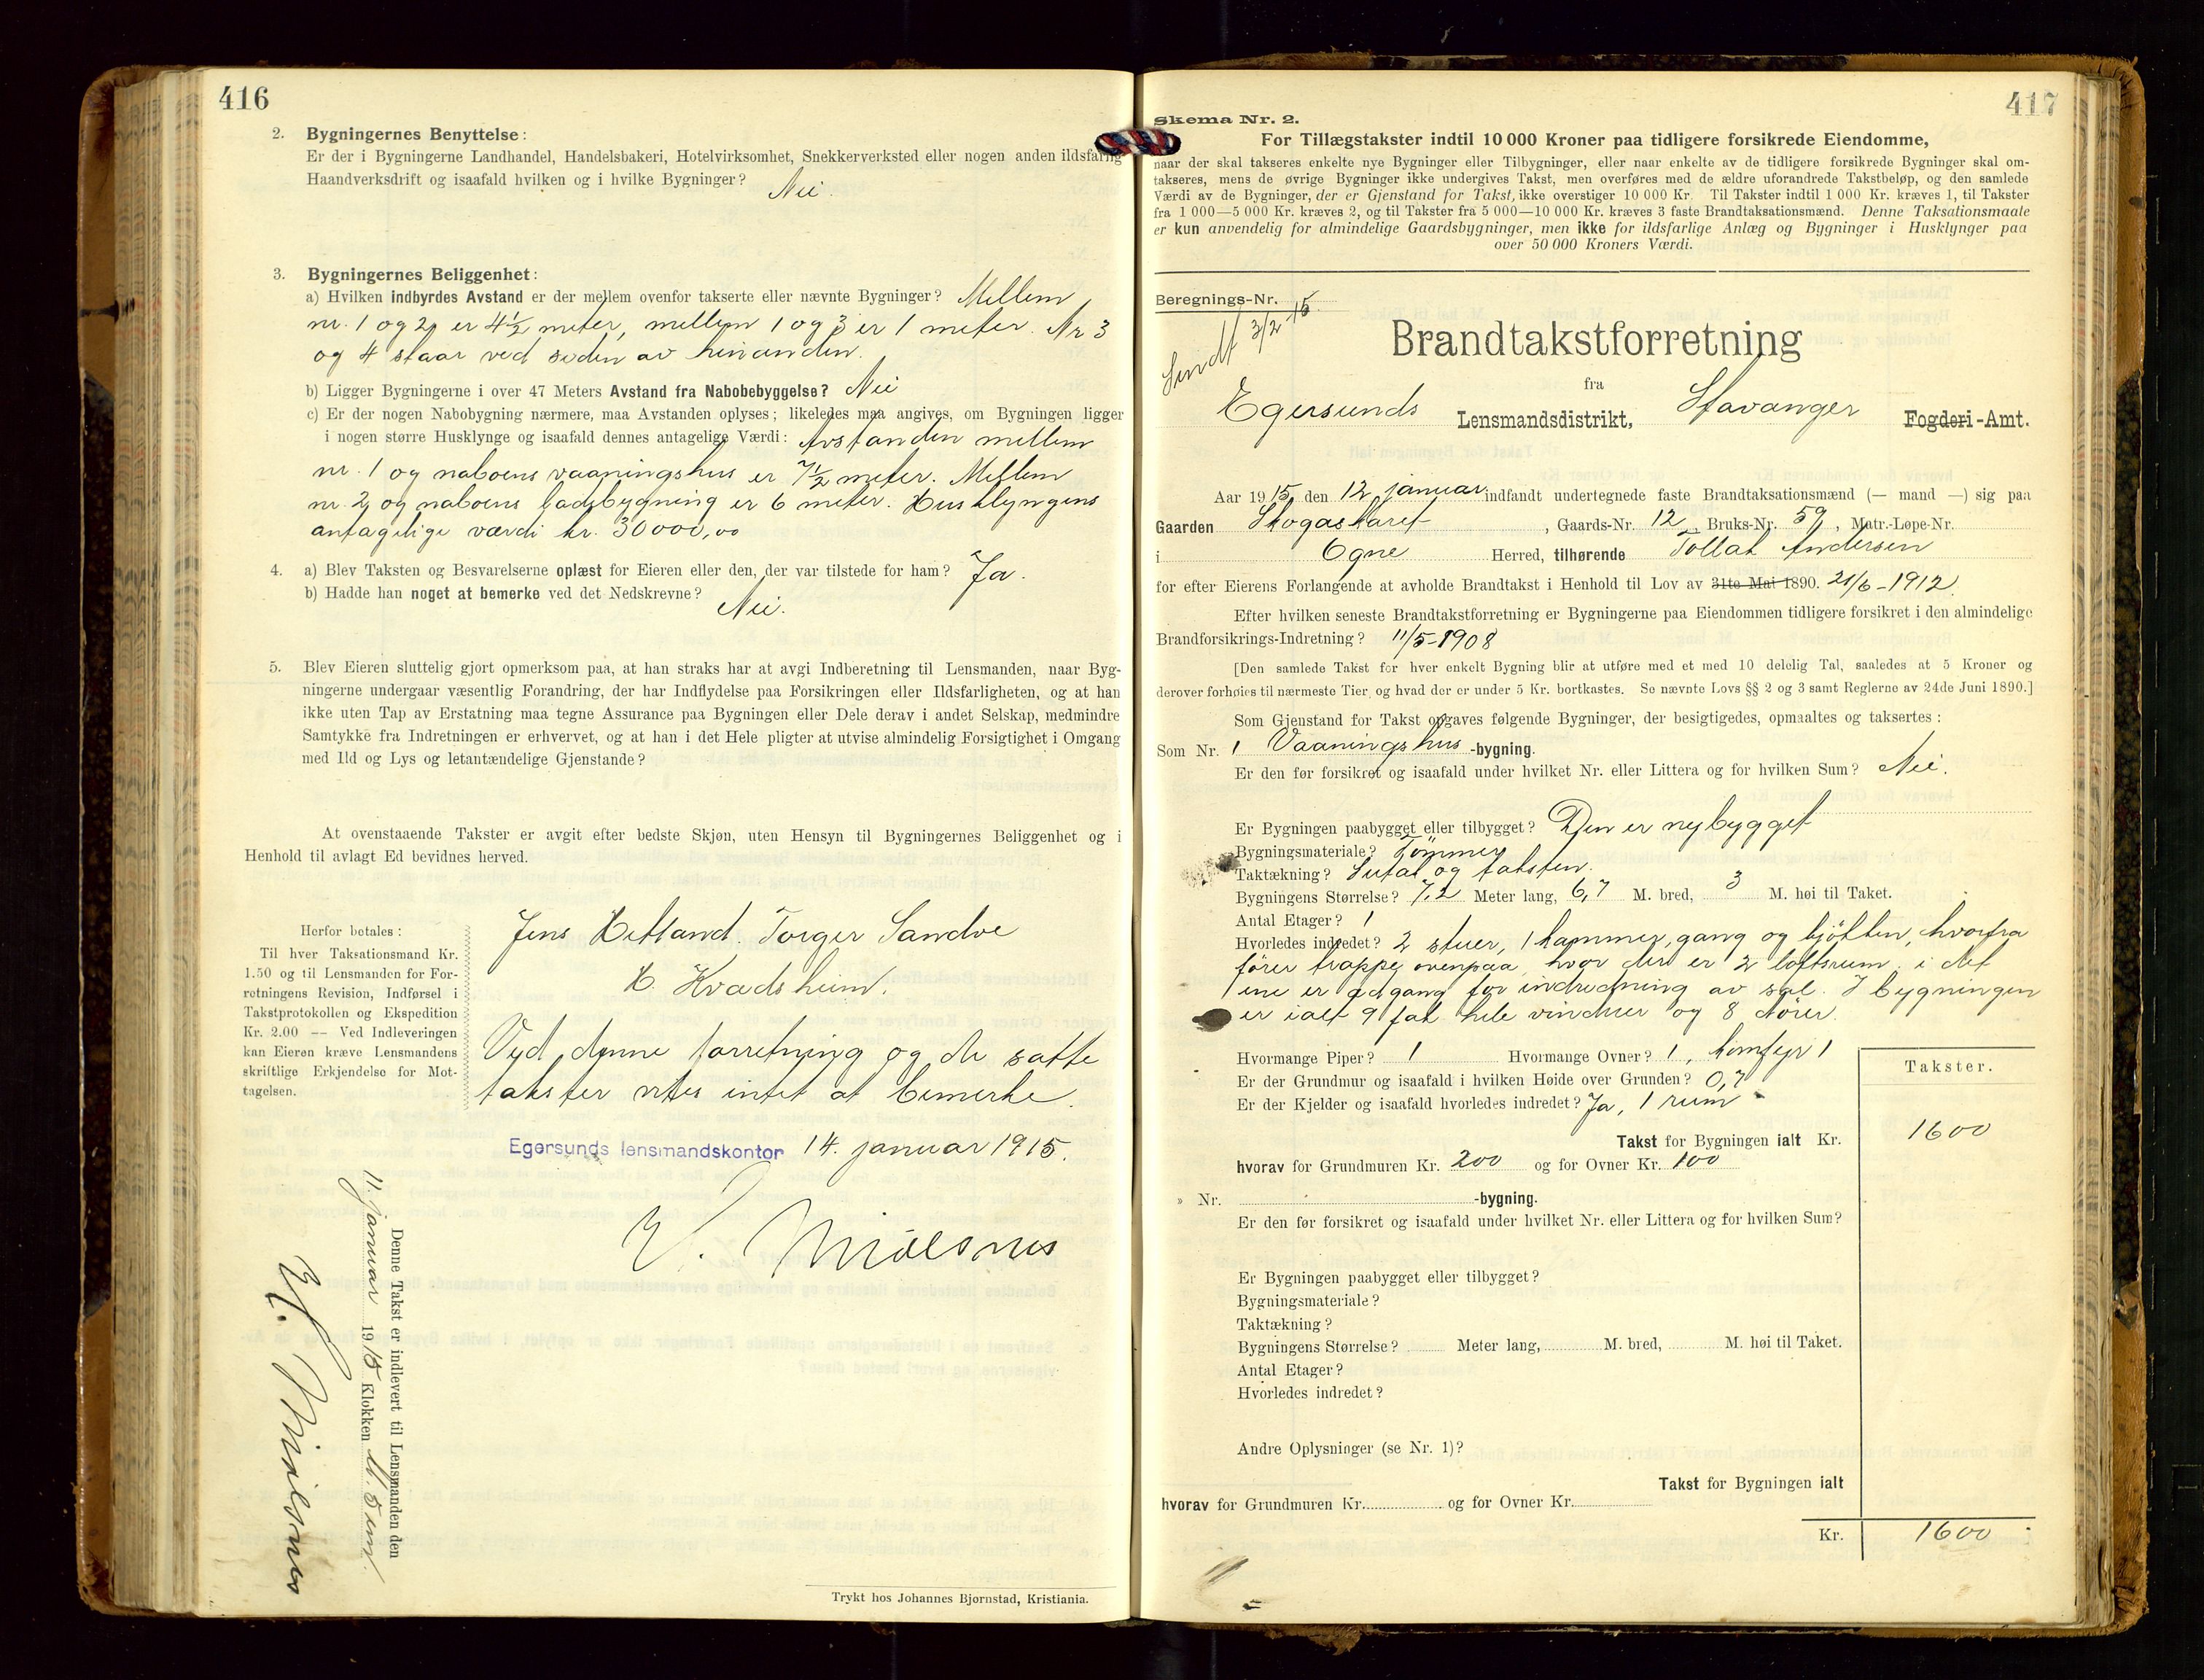 416
2. Bygningernes Benyttelse:
Er der i Bygningerne Landhandel, Handelsbakeri, Hotelvirksomhet, Snekkerverksted eller nogen anden ildsfarlig
Haandverksdrift og isaafald hvilken og i hvilke Bygninger? Nei.
3. Bygningernes Beliggenhet:
a) Hvilken indbyrdes Avstand er der mellem ovenfor takserte eller nævnte Bygninger? Mellem
nr. 1 og 2 er 4½ meter, mellem 1 og 3 er 1 meter. Nr 3
og 4 staar ved siden av hinanden.
b) Ligger Bygningerne i over 47 Meters Avstand fra Nabobebyggelse? Nei
c) Er der nogen Nabobygning nærmere, maa Avstanden oplyses; likeledes maa angives, om Bygningen ligger
i nogen større Husklynge og isaafald dennes antagelige Værdi: Avstanden mellem
nr. 1 og naboens vaaningshus er 7½ meter. Mellem
nr. 2 og naboens ladebygning er 6 meter. Husklyngens
antagelige værdi kr. 30000,00
4. a) Blev Taksten og Besvarelserne oplæst for Eieren eller den, der var tilstede for ham? Ja.
b) Hadde han noget at bemerke ved det Nedskrevne? Nei.
5. Blev Eieren sluttelig gjort opmerksom paa, at han straks har at avgi Indberetning til Lensmanden, naar Byg-
ningerne undergaar væsentlig Forandring, der har Indflydelse paa Forsikringen eller Ildsfarligheten, og at han
ikke uten Tap av Erstatning maa tegne Assurance paa Bygningen eller Dele derav i andet Selskap, medmindre
Samtykke fra Indretningen er erhvervet, og at han i det Hele pligter at utvise almindelig Forsigtighet i Omgang
med Ild og Lys og letantændelige Gjenstande?
At ovenstaaende Takster er avgit efter bedste Skjøn, uten Hensyn til Bygningernes Beliggenhet og i
Henhold til avlagt Ed bevidnes herved.
Jens Hetland. Torger Sandve
H. Kvadsheim.
Herfor betales:
Til hver Taksationsmand Kr.
1.50 og til Lensmanden for For-
retningens Revision, Indførsel i
Takstprotokollen og Ekspedition
Kr. 2.00 — Ved Indleveringen
kan Eieren kræve Lensmandens
skriftlige Erkjendelse for Mot-
tagelsen.
Ved denne forretning og de satte
takster vites intet at bemerke.
Egersunds lensmandskontor 14. januar 1915.
Denne Takst er indlevert til Lensmanden den
11. januar 1915 Klokken
Trykt hos Johannes Bjørnstad, Kristiania.
417
Skema Nr. 2.
For Tillægstakster indtil 10 000 Kroner paa tidligere forsikrede Eiendomme,
naar der skal takseres enkelte nye Bygninger eller Tilbygninger, eller naar enkelte av de tidligere forsikrede Bygninger skal om-
takseres, mens de øvrige Bygninger ikke undergives Takst, men overføres med de ældre uforandrede Takstbeløp, og den samlede
Værdi av de Bygninger, der er Gjenstand for Takst, ikke overstiger 10 000 Kr. Til Takster indtil 1 000 Kr. kræves 1, til Takster
fra 1 000—5 000 Kr. kræves 2, og til Takster fra 5 000—10 000 Kr. kræves 3 faste Brandtaksationsmænd. Denne Taksationsmaate
er kun anvendelig for almindelige Gaardsbygninger, men ikke for ildsfarlige Anlæg og Bygninger i Husklynger paa
over 50 000 Kroners Værdi.
Beregnings-Nr.
Sendt 3/2 -15.
Brandtakstforretning
fra
Egersunds Lensmandsdistrikt, Stavanger Fogderi-Amt.
Aar 1915 den 12 januar indfandt undertegnede faste Brandtaksationsmænd (— mand —) sig paa
Gaarden Skogaskaret, Gaards-Nr. 12, Bruks-Nr. 59, Matr.-Løpe-Nr.
i Ogne Herred, tilhørende Tollak Andersen
for efter Eierens Forlangende at avholde Brandtakst i Henhold til Lov av 31te Mai 1890. 21/6-1912.
Efter hvilken seneste Brandtakstforretning er Bygningerne paa Eiendommen tidligere forsikret i den almindelige
Brandforsikrings-Indretning? 11/5-1908
[Den samlede Takst for hver enkelt Bygning blir at utføre med et med 10 delelig Tal, saaledes at 5 Kroner og
derover forhøies til nærmeste Tier, og hvad der er under 5 Kr. bortkastes. Se nævnte Lovs §§ 2 og 3 samt Reglerne av 24de Juni 1890.]
Som Gjenstand for Takst opgaves følgende Bygninger, der besigtigedes, opmaaltes og taksertes:
Som Nr. 1 Vaaningshus -bygning.
Er den før forsikret og isaafald under hvilket Nr. eller Littera og for hvilken Sum? Nei.
Er Bygningen paabygget eller tilbygget? Den er nybygget
Bygningsmateriale? Tömmer
Taktækning? Sutak og taksten.
Bygningens Størrelse? 7,2 Meter lang, 6,7 M. bred, 3 M. høi til Taket.
Antal Etager? 1
Hvorledes indredet? 2 stuer, 1 kammer, gang og kjökken, hvorfra
fører trappe ovenpaa, hvor der er 2 loftsrum. i det
ene er adgang for indredning av sal. I bygningen
er ialt 9 fak hele vinduer og 8 dører.
Hvormange Piper? 1 Hvormange Ovner? 1, komfyr 1
Er der Grundmur og isaafald i hvilken Høide over Grunden? 0,7
Er der Kjelder og isaafald hvorledes indredet? Ja, 1 rum
Takster.
Takst for Bygningen ialt Kr. 1600
hvorav for Grundmuren Kr. 200 og for Ovner Kr. 100
» Nr. -bygning.
Er den før forsikret og isaafald under hvilket Nr. eller Littera og for hvilken Sum?
Er Bygningen paabygget eller tilbygget?
Bygningsmateriale?
Taktækning?
Bygningens Størrelse? Meter lang, M. bred, M. høi til Taket.
Antal Etager?
Hvorledes indredet?
Andre Oplysninger (se Nr. 1)?
Takst for Bygningen ialt
hvorav for Grundmuren Kr. og for Ovner Kr.
Kr. 1600